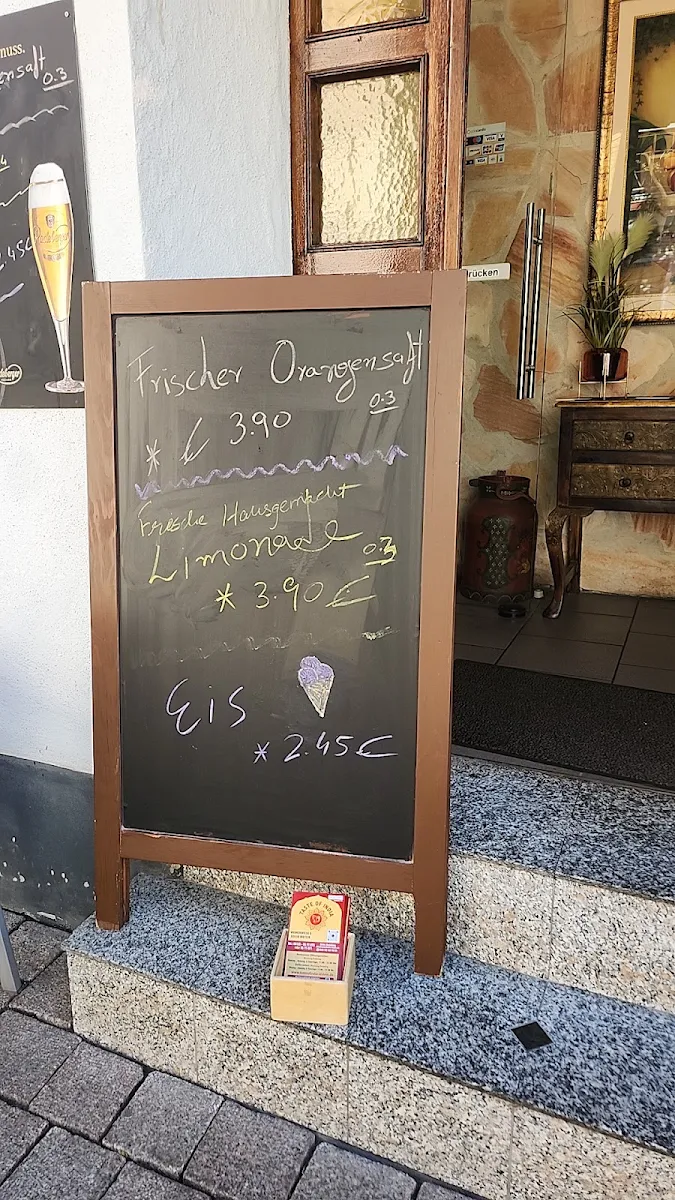 nuss.
ensaft
0.3
2.45€
Radeberger
drücken
VISA
Frischer Orangensaft
0.3
* € 3.90
Frische Hausgemacht
Limonade 0.3
* 3.90 €
Eis
* 2.45 €
TASTE OF INDIA